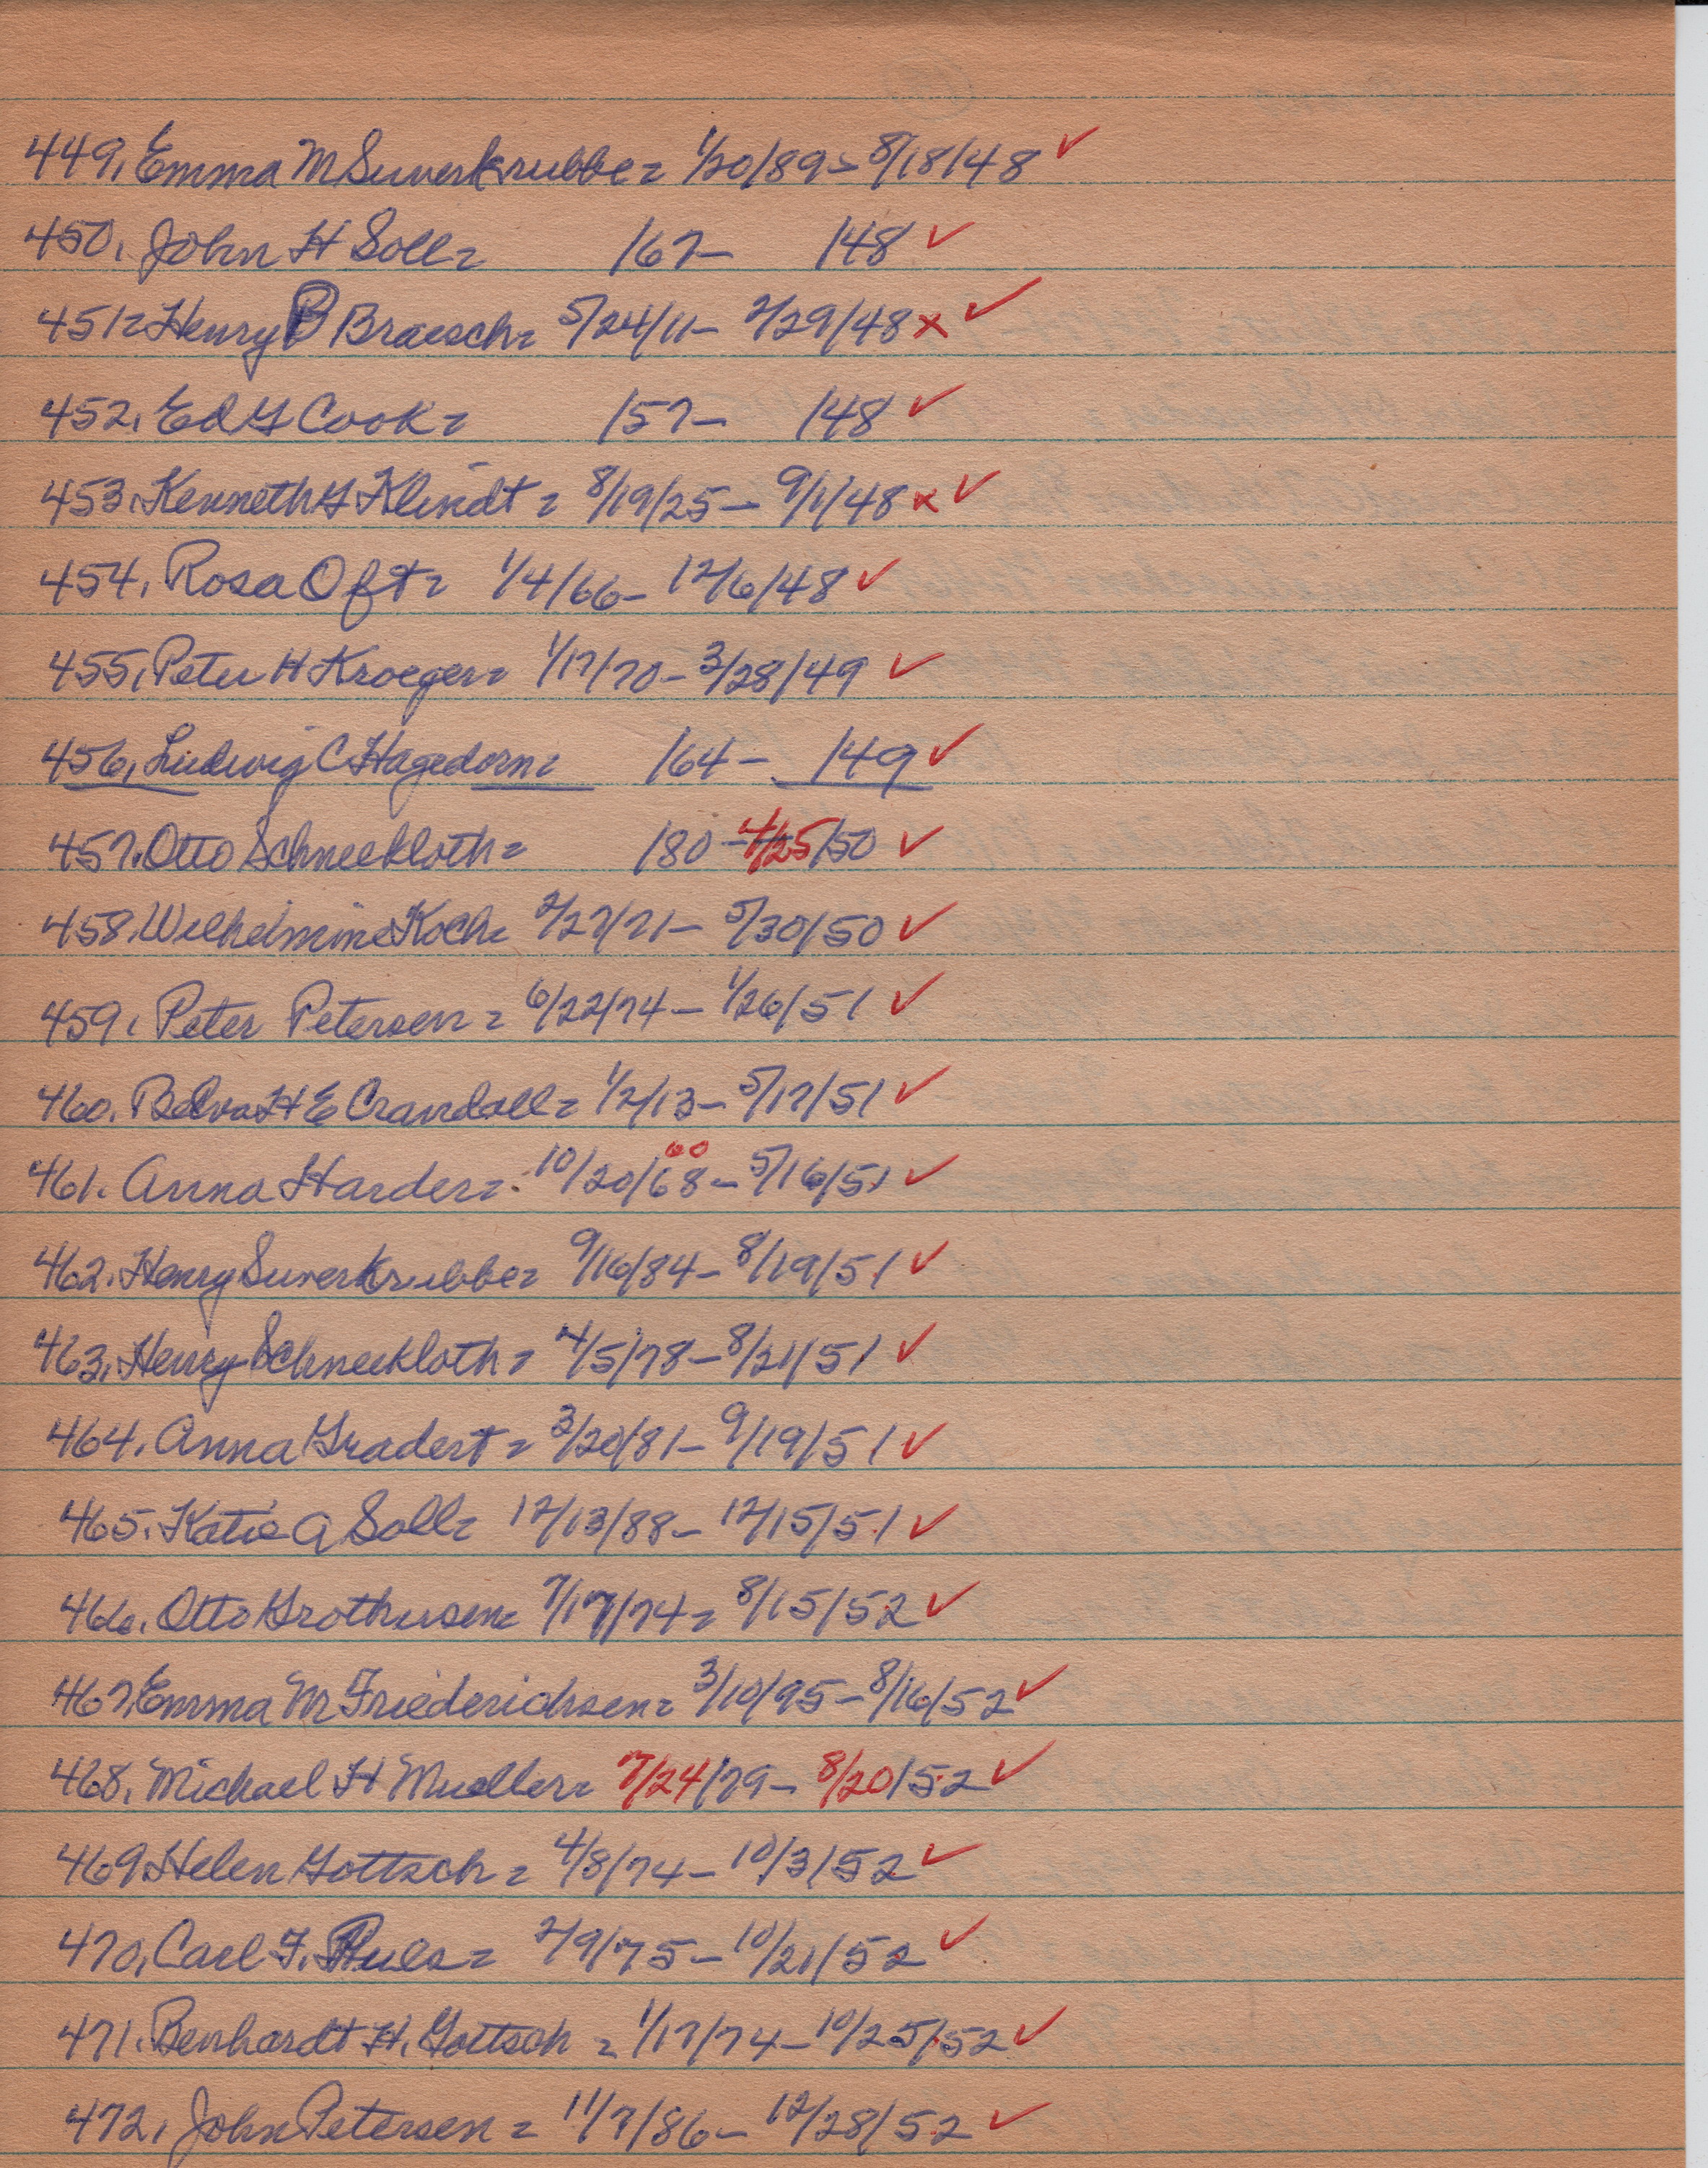 449. Emma M Suverkrubbe = 1/20/89 - 8/18/48 ✓
450. John H Soll = /67 - /48 ✓
451 = Henry B Braesch = 5/24/11 - 2/29/48 x ✓
452. Ed G Cook = /57 - /48 ✓
453. Kenneth G Klindt = 8/19/25 - 9/1/48 x ✓
454. Rosa Oft = 1/4/66 - 12/6/48 ✓
455. Peter H Kroeger = 1/17/70 - 3/28/49 ✓
456. Ludwig C Hagedorn = /64 - /49 ✓
457. Otto Schneekloth = /80 - 4/25/50 ✓
458. Wilhelmine Koch = 2/27/71 - 5/30/50 ✓
459. Peter Petersen = 6/22/74 - 1/26/51 ✓
460. Belva H E Crandall = 1/2/13 - 5/17/51 ✓
60
461. Anna Harder = 10/20/68 - 5/16/51 ✓
462. Henry Suverkrubbe = 9/16/84 - 8/19/51 ✓
463. Henry Schneekloth = 4/5/78 - 8/21/51 ✓
464. Anna Gradert = 3/20/81 - 9/19/51 ✓
465. Katie A Soll = 12/13/88 - 12/15/51 ✓
466. Otto Grothusen = 7/17/74 = 8/15/52 ✓
467. Emma M Friederichsen = 3/10/95 - 8/16/52 ✓
468. Michael H Mueller = 7/24/79 - 8/20/52 ✓
469. Helen Gottsch = 4/8/74 - 10/3/52 ✓
470. Carl F. = 2/9/75 - 10/21/52 ✓
471. Benhardt H. Gottsch = 1/17/74 - 10/25/52 ✓
472. John Petersen = 11/7/86 - 12/28/52 ✓